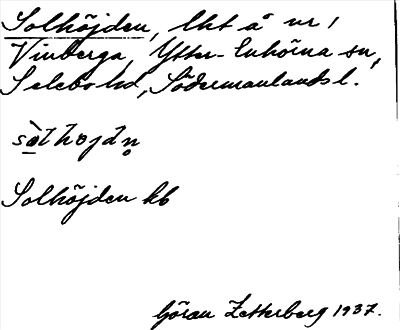 Solhöjden, lht å nr 1
Vinberga, Ytter-Enhörna sn,
Selebo hd, Södermanlands l.
sòlhöjdn̥
Solhöjden kb
Göran Zetterberg 1937.